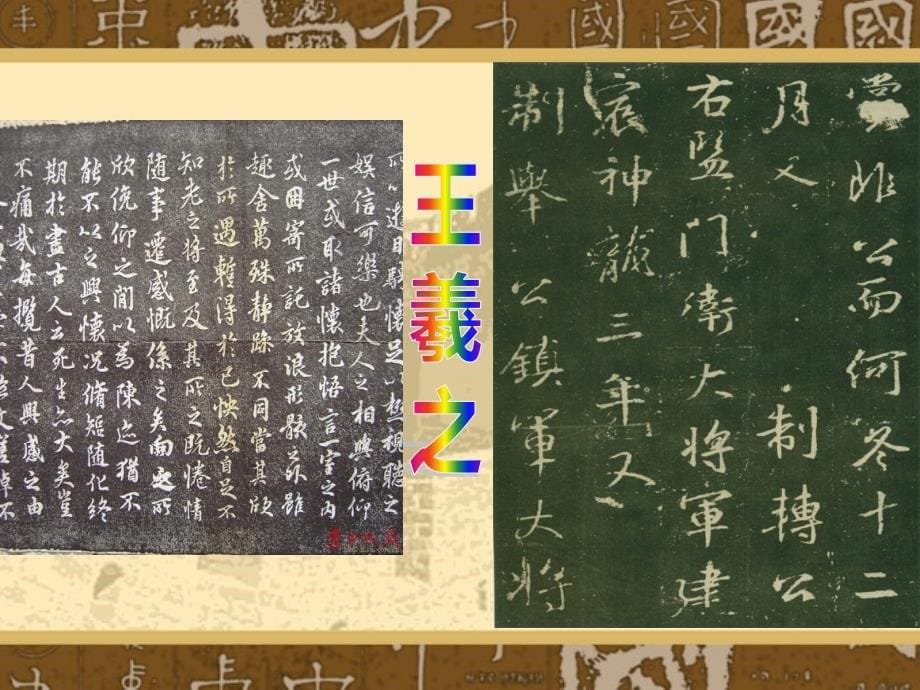 王羲之
所以遊目騁懷足以極視聽之
娛信可樂也夫人之相與俯仰
一世或取諸懷抱悟言一室之內
或因寄所託放浪形骸之外雖
趣舍萬殊靜躁不同當其欣
於所遇暫得於己怏然自足不
知老之將至及其所之既惓情
隨事遷感慨係之矣向之所
欣俛仰之閒以為陳迹猶不
能不以之興懷況脩短隨化終
期於盡古人云死生亦大矣豈
不痛哉每攬昔人興感之由
非公而何冬十二
月又 制轉公
右監門衛大將軍建
宸神龍三年又
制舉公鎮軍大將